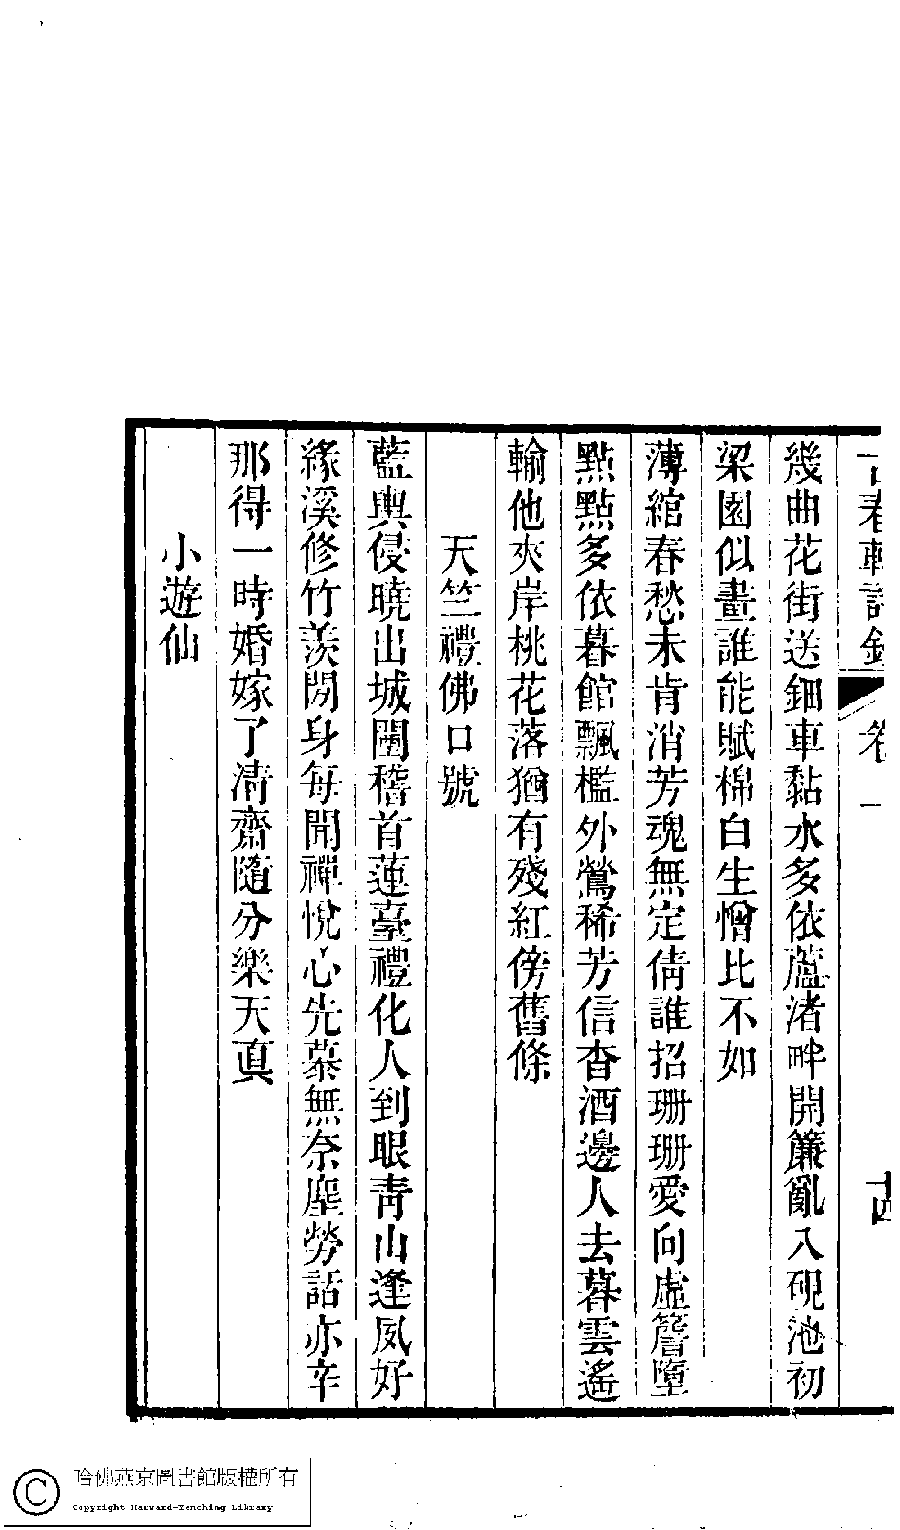 古春軒詩鈔 卷一 十四
幾曲花街送鈿車黏水多依蘆渚畔開簾亂入硯池初
梁園似畫誰能賦棉白生憎比不如
薄綰春愁未肯消芳魂無定倩誰招珊珊愛向虛簷墮
點點多依暮館飄檻外鶯稀芳信杳酒邊人去暮雲遙
輸他夾岸桃花落猶有殘紅傍舊條
天竺禮佛口號
藍輿侵曉出城闉稽首蓮臺禮化人到眼青山逢夙好
緣溪修竹羨閒身每聞禪悅心先慕無奈塵勞話亦辛
那得一時婚嫁了清齋隨分樂天真
小遊仙
哈佛燕京圖書館版權所有
Copyright Harvard-Yenching Library